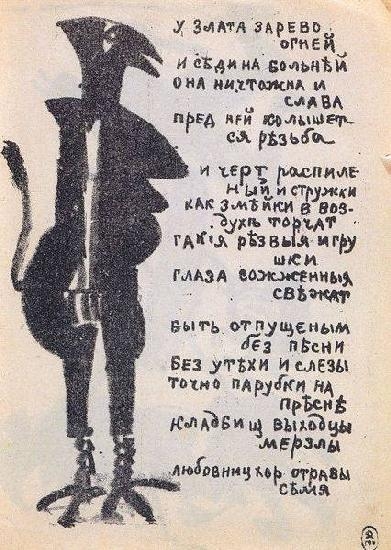 У ЗЛАТА ЗАРЕВО
ОГНЕЙ
И СѢДИНА БОЛЬНѢЙ
ОНА НИЧТОЖНА И
СЛАВА
ПРЕД НЕЙ КОЛЫШЕТ-
СЯ РѢЗЬБА
И ЧЕРТ РАСПИЛЕ-
НЫЙ И СТРУЖКИ
КАК ЗМѢЙКИ В ВОЗ-
ДУХѢ ТОРЧАТ
ТАКІЯ РѢЗВЫЯ ИГРУ
ШКИ
ГЛАЗА СОЖЖЕННЫЯ
СВѢЖАТ
БЫТЬ ОТПУЩЕНЫМ
БЕЗ ПѢСНИ
БЕЗ УТѢХИ И СЛЕЗЫ
ТОЧНО ПАРУБКИ НА
ПРѢСНѢ
КЛАДБИЩ ВЫХОДЦЫ
МЕРЗЛЫ
ЛЮБОВНИЦ ХОР ОТРАВЫ
СѢМЯ